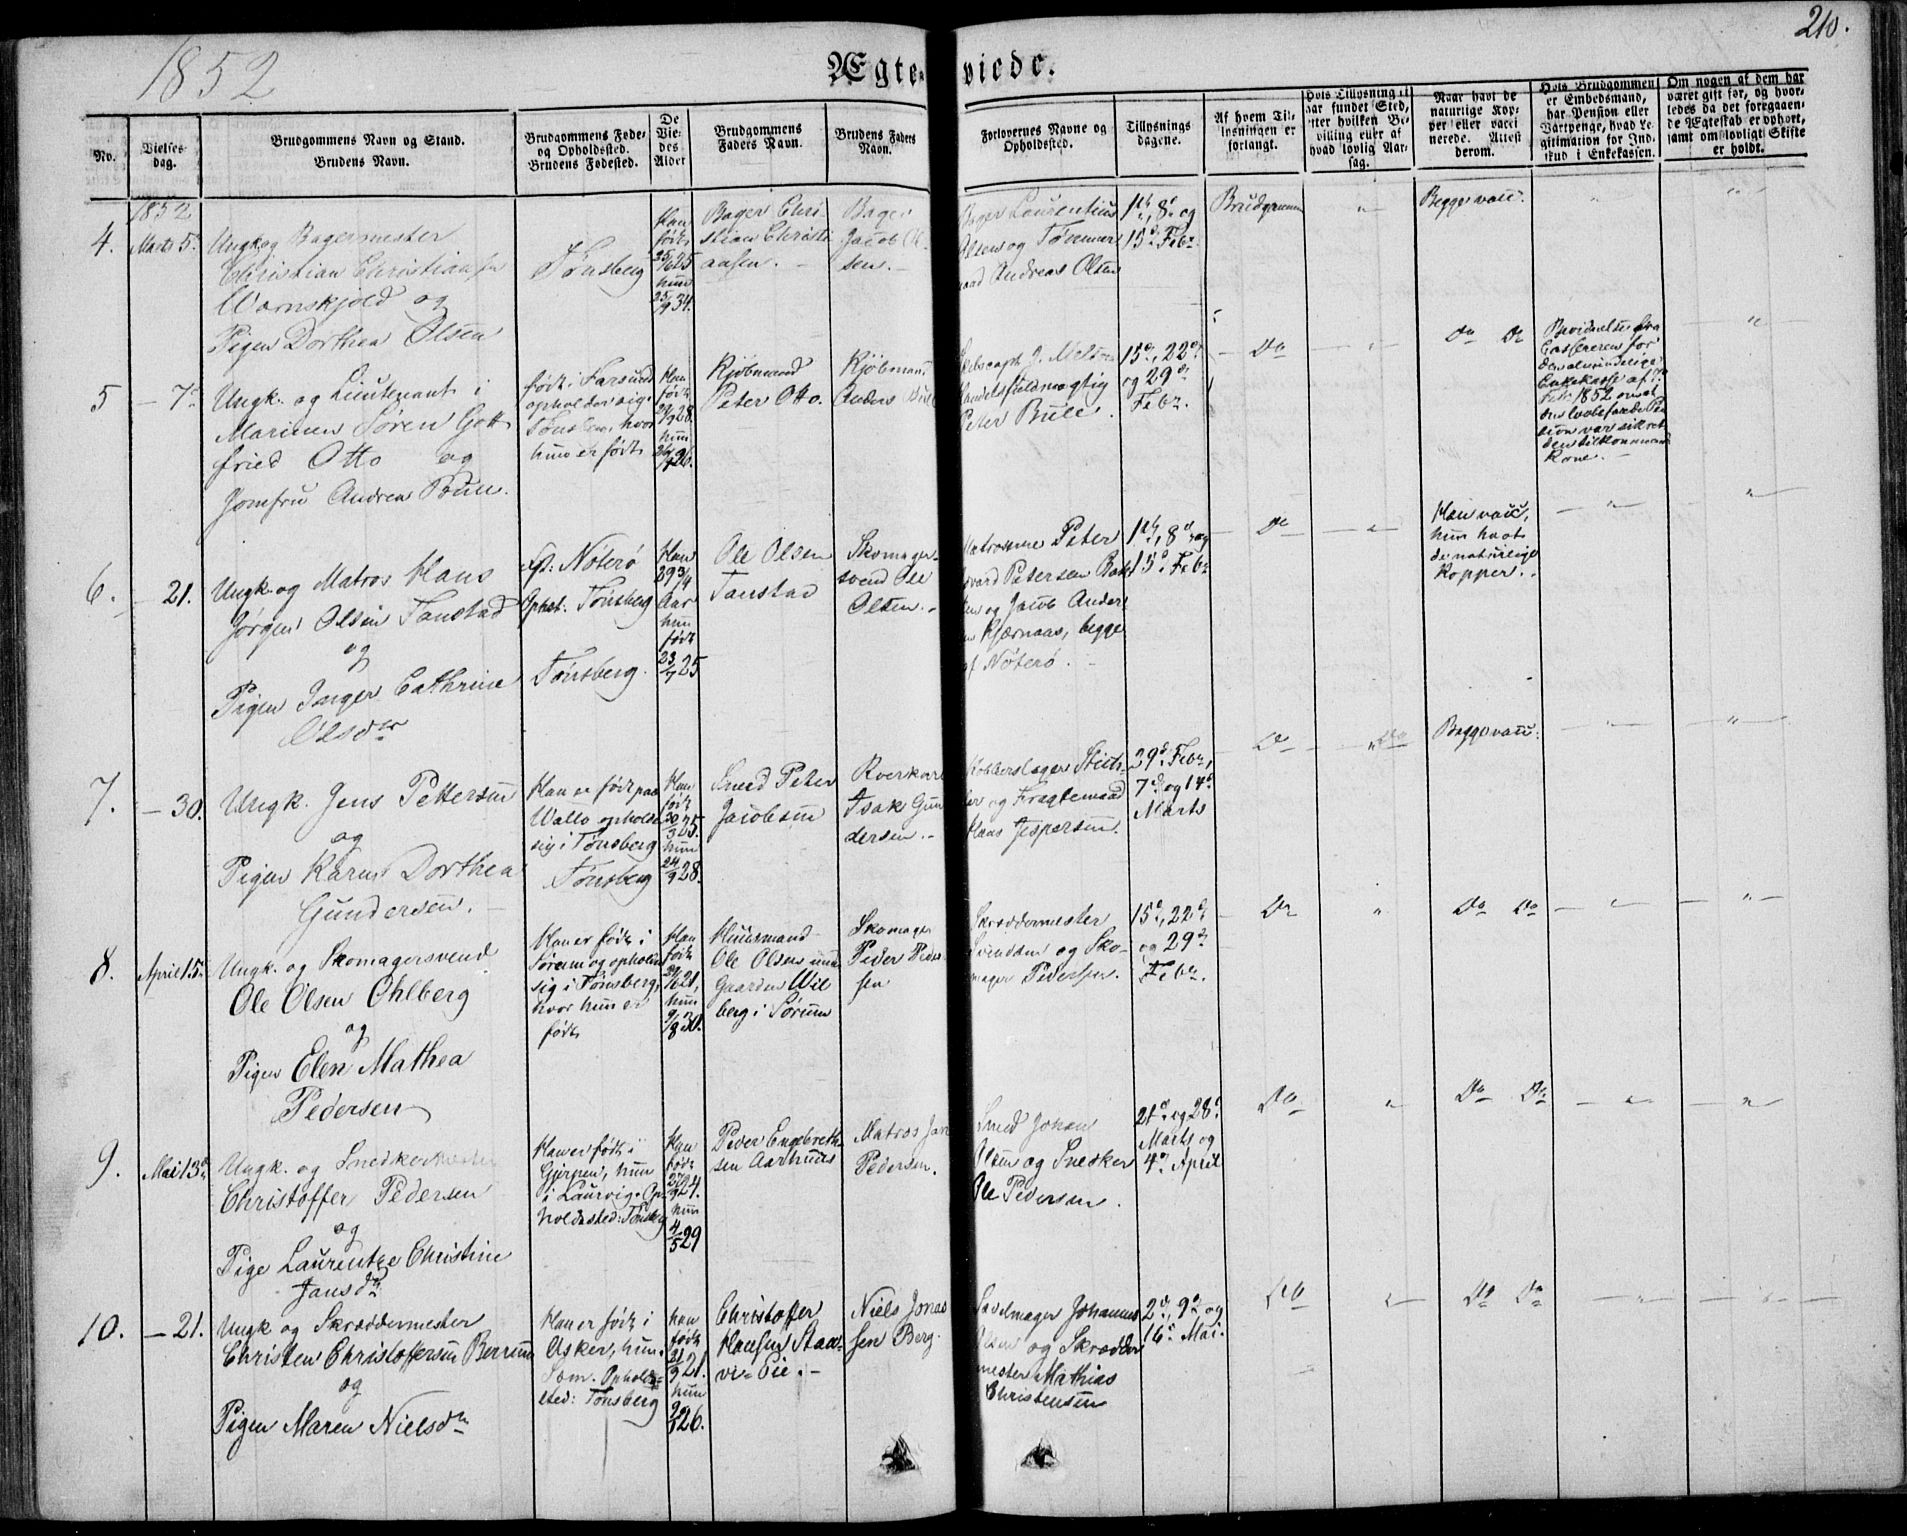 1852
Ægteviede.
210.
No.
Vielses-
dag.
Brudgommens Navn og Stand.
Brudens Navn.
Brudgommens Føde-
og Opholdssted.
Brudens Fødested.
De
Vie-
des
Alder
Brudgommens
Faders Navn.
Brudens Faders
Navn.
Forlovernes Navne og
Opholdssted.
Tillysnings
dagene.
Af hvem Til-
lysningen er
forlangt.
Hvis Tillysning ei
har fundet Sted,
efter hvilken Be-
villing eller af
hvad lovlig Aar-
sag.
Naar havt de
naturlige Kop-
per eller vacci
nerede. Attest
derom.
Hvis Brudgommen
er Embedsmand,
har Pension eller
Vartpenge, hvad Le-
gitimation for Ind-
skud i Enkekassen.
Om nogen af dem har
været gift før, og hvor-
ledes da det foregaaen-
de Ægteskab er ophørt,
samt om lovligt Skifte
er holdt.
1852
4.
Marts 5.
Ungk og Bagermester
Christian Christiansen
Wærnskjold og
Pigen Dorthea Olsen
Tønsberg
Han
født
25/6 25
hun
25/9 34.
Bager Chri
stian Christi
ansen.
Bager
Jacob Ol-
sen.
Bager Laurentius
Olsen og Tømmer
mand Andreas Olsen
1ste, 8de og
15de Febr
Brudgommen
Begge vacc.
5
7de
Ungk. og Lieutenant i
Marinen Søren Gott
fried Otto og
Jomfru Andrea Bull.
født i Farsund
opholder sig i
Tønsberg, hvor
hun er født
Han
født
28.
hun
26.
Kjøbmand
Peter Otto.
Kjøbmand
Anders Bull
Skibscapt J.
Handelsfuldmægtig
Peter Bull.
15de, 22de
og 29de
Febr.
Do
Do Do
Bevidnelse fra
Cassereren for
den almindelige
Enkekasse af 7de
Febr 1852 om at
den lovbefalede Pen
sion var sikret
den tilkommende
Kone.
6.
21.
Ungk. og Matros Hans
Jørgen Olsen Tanstad
og
Pigen Inger Cathrine
Olsdtr
Fød: Nøterø
Ophst: Tønsberg
Tønsberg.
Han
29 3/4
Aar
hun
født
23/7 25
Ole Olsen
Tanstad
Skomager-
svend Ole
Olsen.
Matroserne Peter
Edvard Petersen Bak
ken og Jacob Ander
sen Kjærnaas, begge
af Nøterø.
1ste, 8de og
15de Febr
Do
Han vacc,
hun havt
de naturlige
Kopper.
7.
30.
Ungk. Jens Pettersen
og
Pigen Karen Dorthea
Gundersen.
Han er født paa
Wallø opholder
sig i Tønsberg
Tønsberg
Han
født
30/3 25.
hun
24/9 28.
Smed Peter
Jacobsen
Isak Gun
dersen.
Kobberslager
ler og Fragtemand
Hans Jespersen.
29de Febr,
7de og 14de
Marts
Do
Do
Begge vacc.
8.
April 15.
Ungk. og Skomagersvend
Ole Olsen Ohlberg
og
Pigen Elen Mathea
Pedersen
Han er født i
Sørum og opholder
sig i Tønsberg,
hvor hun er
født
Han
født
21,
hun
9/8 30.
Huusmand
Ole Olsen und
Gaarden Wil
berg i Sørum
Skomager
Peder Peder-
sen
Skræddermester
Svendsen og Sko-
mager Pedersen.
15de, 22de
og 29de
Febr.
Do
Do Do
9.
Mai 13de
Ungk. og Snedkermester
Christoffer Pedersen
og
Pige Laurentze Christine
Jansdr
Han er født i
Gjerpen, hun
i Laurvig. Op-
holdssted: Tønsberg
Han
født
24.
hun
4/5 29
Peder Engebreth-
sen Aarhuus
Matros Jan
Pedersen.
Smed Johan
Olsen og Snedker
Ole Pedersen.
21de og 28de
Marts og
4de April
Do
Do Do
10.
21.
Ungk og Skræddermester
Christen Christoffersen Berrum
og
Pigen Maren Nielsdr
Han er født i
Asker, hun i
Sem. Opholds-
sted: Tønsberg
Han
født
21/9 21.
hun
26.
Christoffer
Hansen Staa-
vi-Eie.
Niels Jonas
sen Berg.
Sadelmager Johannes
Olsen og Skrædder
mester Mathias
Christensen
2de, 9de og
16de Mai.
Do
Do Do